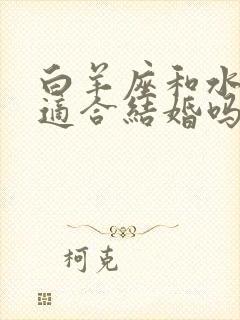 白羊座和水
適合結婚吗
柯克